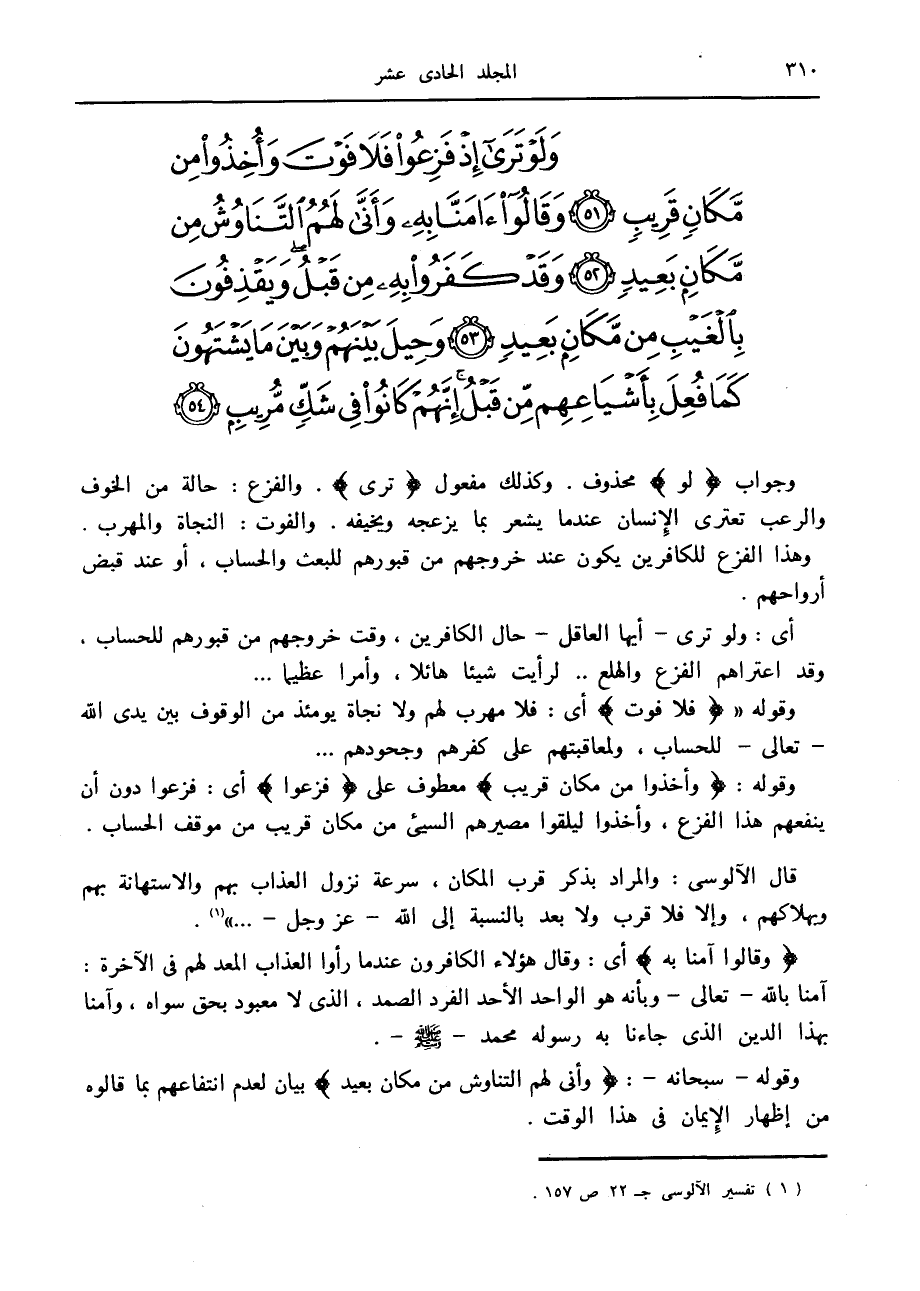 ٣١٠ المجلد الحادى عشر
وَلَوْ تَرَىٰٓ إِذْ فَزِعُوا۟ فَلَا فَوْتَ وَأُخِذُوا۟ مِن
مَّكَانٍ قَرِيبٍ ﴿٥١﴾ وَقَالُوٓا۟ ءَامَنَّا بِهِۦ وَأَنَّىٰ لَهُمُ ٱلتَّنَاوُشُ مِن
مَّكَانٍۭ بَعِيدٍ ﴿٥٢﴾ وَقَدْ كَفَرُوا۟ بِهِۦ مِن قَبْلُ ۖ وَيَقْذِفُونَ
بِٱلْغَيْبِ مِن مَّكَانٍۭ بَعِيدٍ ﴿٥٣﴾ وَحِيلَ بَيْنَهُمْ وَبَيْنَ مَا يَشْتَهُونَ
كَمَا فُعِلَ بِأَشْيَاعِهِم مِّن قَبْلُ ۚ إِنَّهُمْ كَانُوا۟ فِى شَكٍّ مُّرِيبٍۭ ﴿٥٤﴾
وجواب ﴿ لو ﴾ محذوف . وكذلك مفعول ﴿ ترى ﴾ . والفزع : حالة من الخوف
والرعب تعترى الإنسان عندما يشعر بما يزعجه ويخيفه . والفوت : النجاة والمهرب .
وهذا الفزع للكافرين يكون عند خروجهم من قبورهم للبعث والحساب ، أو عند قبض
أرواحهم .
أى : ولو ترى – أيها العاقل – حال الكافرين ، وقت خروجهم من قبورهم للحساب ،
وقد اعتراهم الفزع والهلع .. لرأيت شيئا هائلا ، وأمرا عظيما ...
وقوله « ﴿ فلا فوت ﴾ أى : فلا مهرب لهم ولا نجاة يومئذ من الوقوف بين يدى الله
– تعالى – للحساب ، ولمعاقبتهم على كفرهم وجحودهم ...
وقوله : ﴿ وأخذوا من مكان قريب ﴾ معطوف على ﴿ فزعوا ﴾ أى : فزعوا دون أن
ينفعهم هذا الفزع ، وأخذوا ليلقوا مصيرهم السيئ من مكان قريب من موقف الحساب .
قال الآلوسى : والمراد بذكر قرب المكان ، سرعة نزول العذاب بهم والاستهانة بهم
وبهلاكهم ، وإلا فلا قرب ولا بعد بالنسبة إلى الله – عز وجل – ...»(١) .
﴿ وقالوا آمنا به ﴾ أى : وقال هؤلاء الكافرون عندما رأوا العذاب المعد لهم فى الآخرة :
آمنا بالله – تعالى – وبأنه هو الواحد الأحد الفرد الصمد ، الذى لا معبود بحق سواه ، وآمنا
بهذا الدين الذى جاءنا به رسوله محمد – ﷺ – .
وقوله – سبحانه – : ﴿ وأنى لهم التناوش من مكان بعيد ﴾ بيان لعدم انتفاعهم بما قالوه
من إظهار الإيمان فى هذا الوقت .
( ١ ) تفسير الآلوسى جـ ٢٢ ص ١٥٧ .